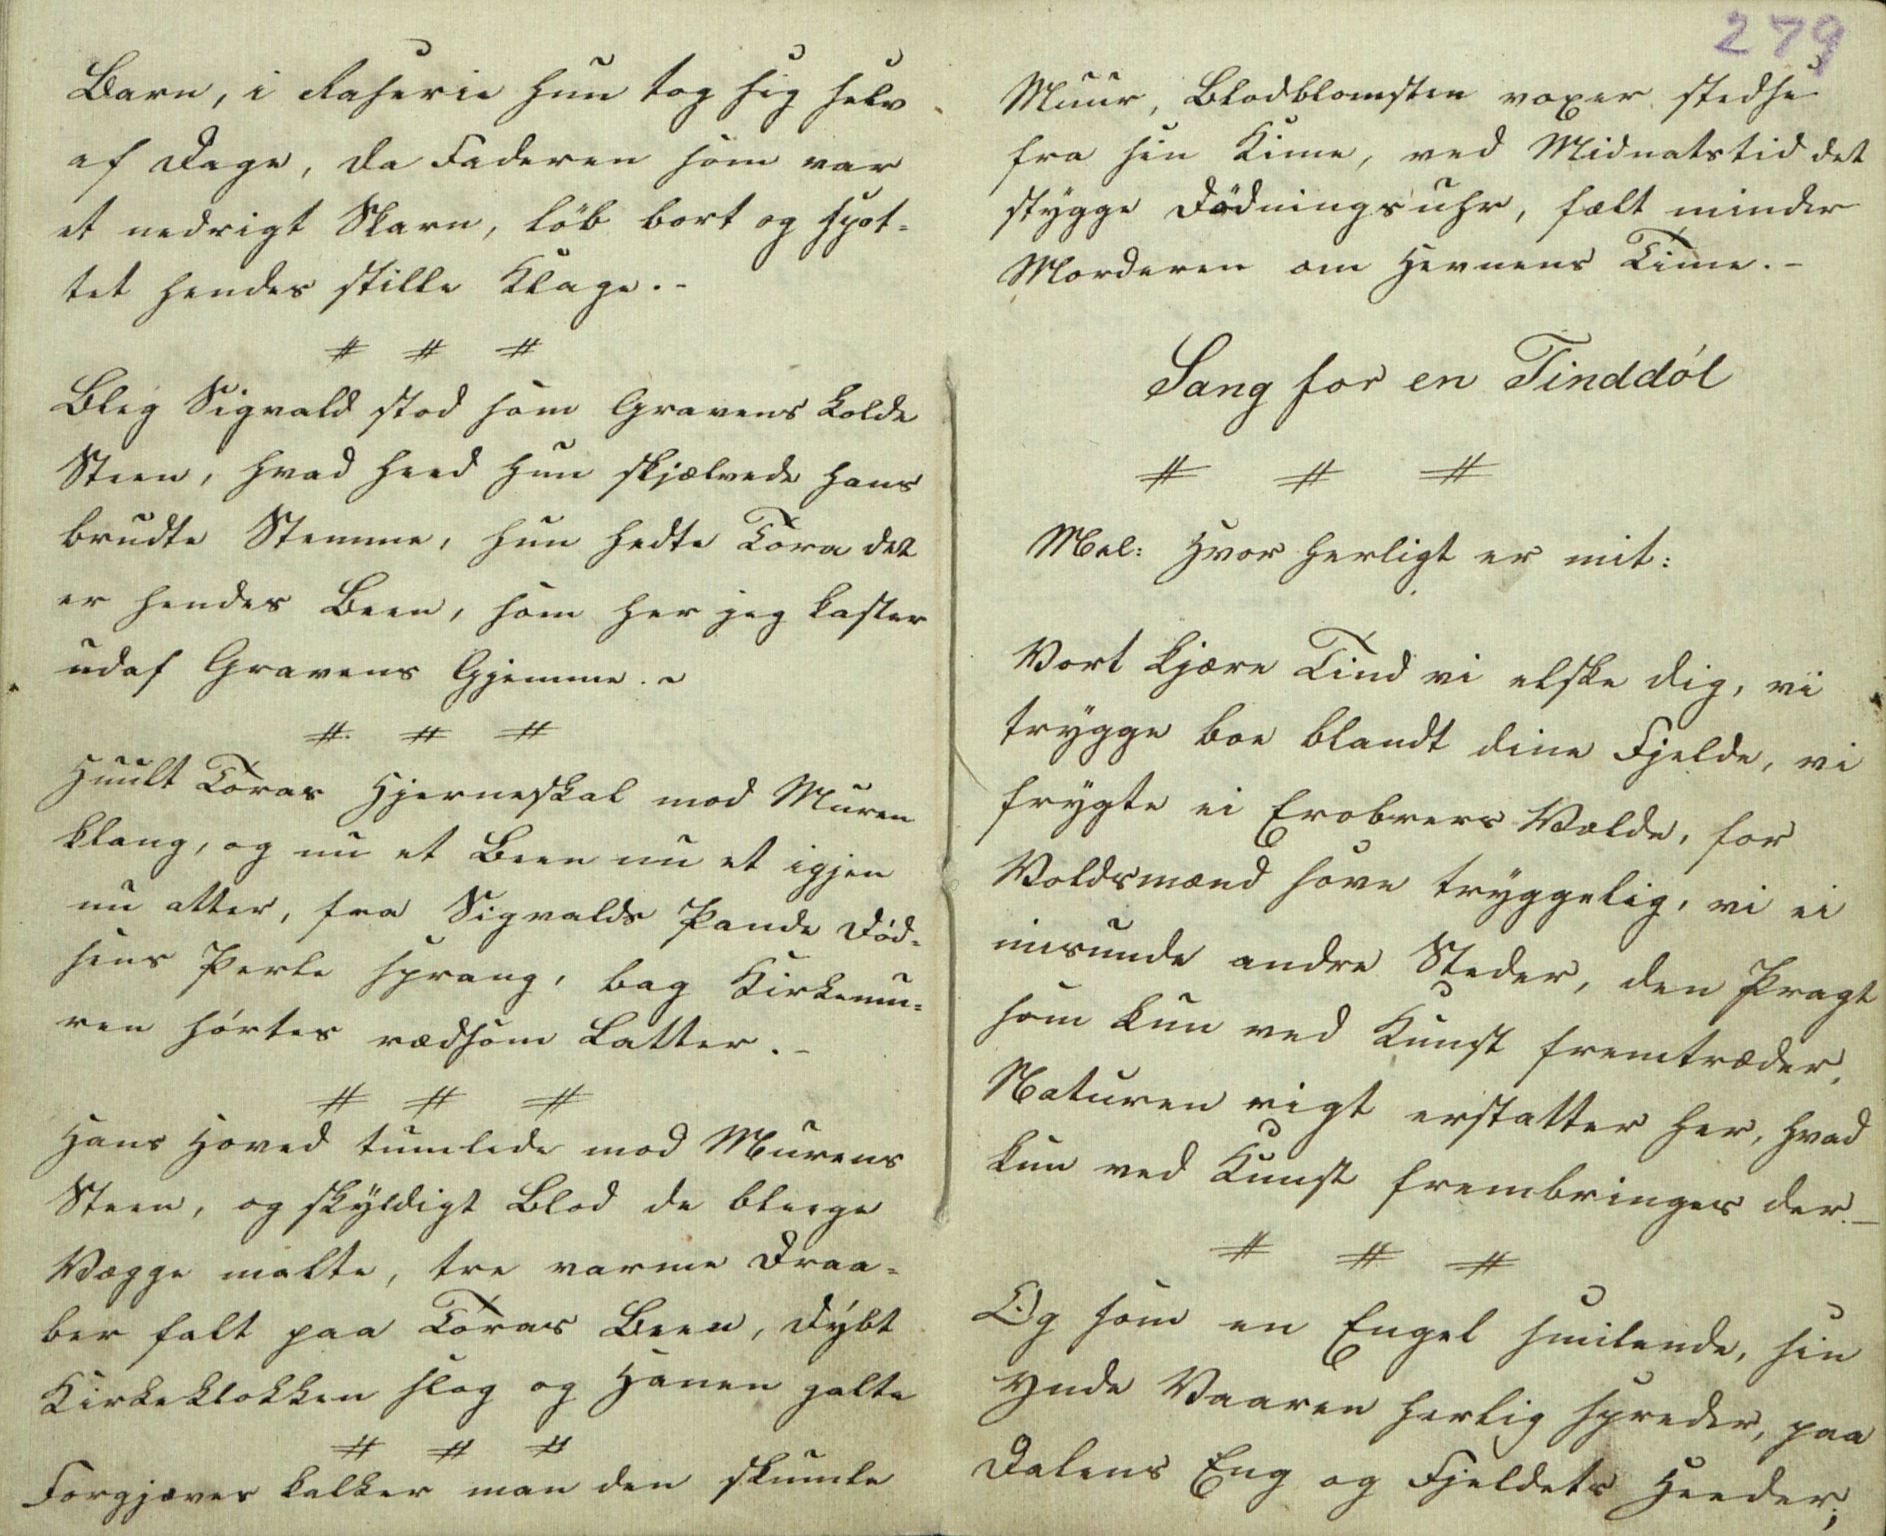 Barn, i Raserie hun tog sig selv
af Dage, da Faderen som var
et nedrigt Skarn, løb bort og spot-
tet hendes stille Klage.-
# # #
Bleg Sigvald stod som Gravens kolde
Steen, hvad heed hun skjælvede hans
brudte Stemme, hun hedte Tora det
er hendes Been, som her jeg kaster
udaf Gravens Gjemme.-
# # #
Huult Toras Hjerneskal mod Muren
klang, og nu et Been nu et igjen
nu atter, fra Sigvalds Pande Død-
sens Perle sprang, bag Kirkemu-
ren hørtes rædsom Latter.-
# # #
Hans Hoved tumlede mod Murens
Steen, og skyldigt Blod de bleege
Vægge malte, tre varme Draa-
ber falt paa Toras Been, dybt
Kirkeklokken slog og Hanen galte
# # #
Forgjæves kalker man den skumle
279
Muur, Blodblomsten voxer stedse
fra sin Kime, ved Midnatstid det
stygge Dödningsuhr, fælt minder
Morderen om Hevnens Time.-
Sang for en Tinddøl
# # #
Mel: Hvor herligt er mit:
Vort kjære Tind vi elske dig, vi
trygge boe blandt dine Fjelde, vi
frygte ei Erobrers Vælde, for
Voldsmænd sove tryggelig, vi ei
misunde andre Steder, den Pragt
som kun ved Kunst fremtræder,
Naturen rigt erstatter her, hvad
kun ved Kunst frembringes der.-
# # #
Og som en Engel smilende, sin
Ynde Vaaren herlig spreder, paa
Dalens Eng og Fjeldets Heeder;